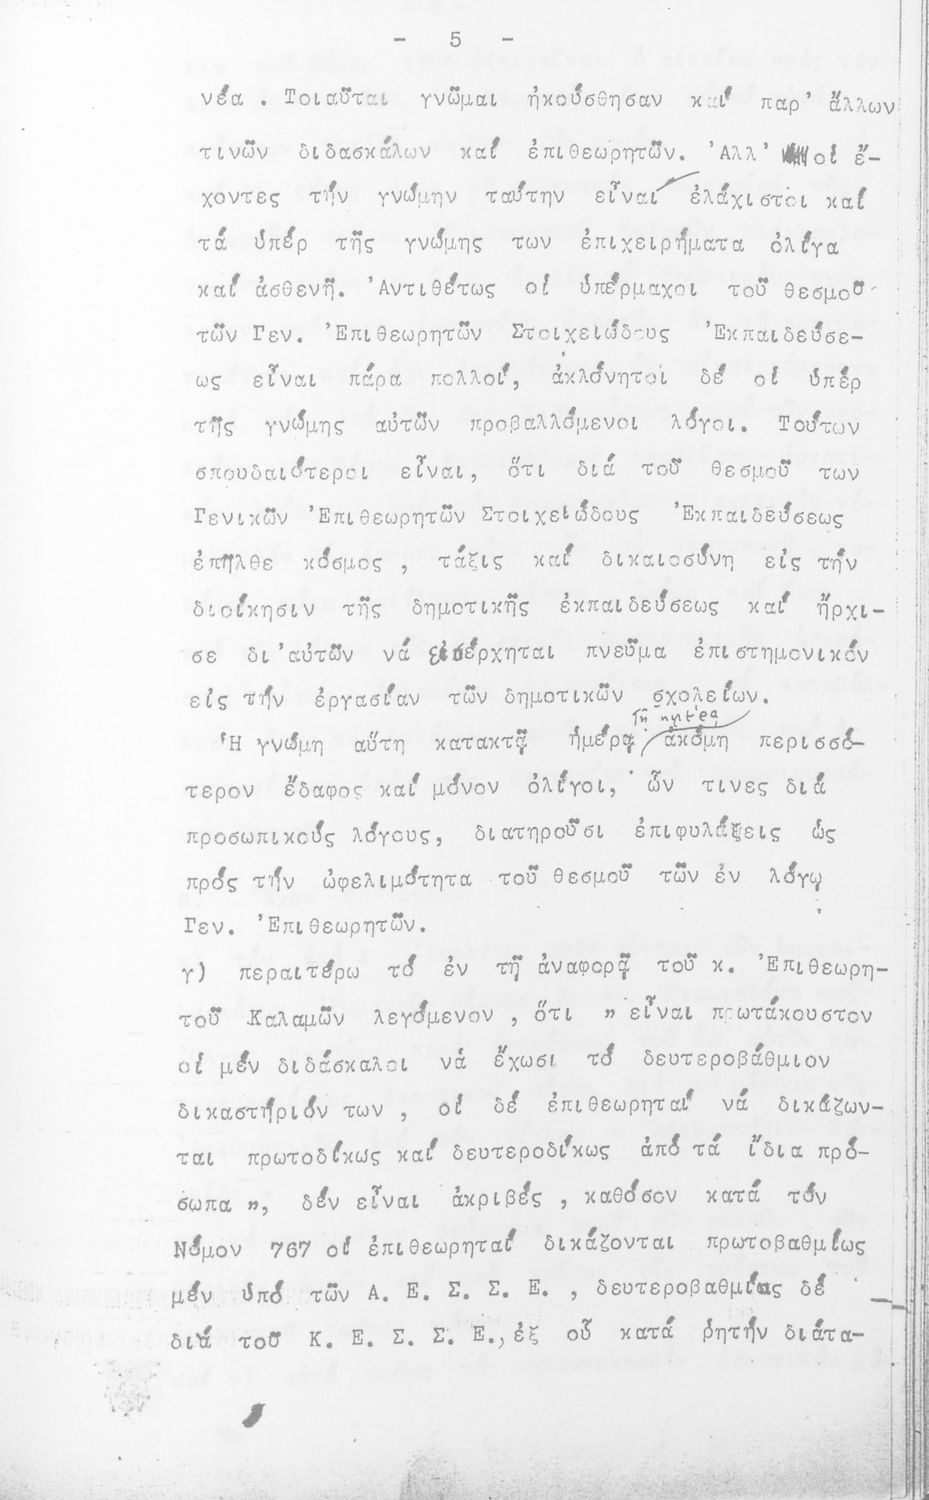 - 5 -
νέα . Τοιαῦται γνῶμαι ἠκούσθησαν καί παρ' ἄλλων
τινῶν διδασκάλων καί ἐπιθεωρητῶν. 'Αλλ' οἱ ἔ-
χοντες τήν γνώμην ταύτην εἶναι ἐλάχιστοι καί
τά ὑπέρ τῆς γνώμης των ἐπιχειρήματα ὀλίγα
καί ἀσθενῆ. 'Αντιθέτως οἱ ὑπέρμαχοι τοῦ θεσμοῦ
τῶν Γεν. 'Επιθεωρητῶν Στοιχειώδους 'Εκπαιδεύσε-
ως εἶναι πάρα πολλοί, ἀκλόνητοι δέ οἱ ὑπέρ
τῆς γνώμης αὐτῶν προβαλλόμενοι λόγοι. Τούτων
σπουδαιότεροι εἶναι, ὅτι διά τοῦ θεσμοῦ των
Γενικῶν 'Επιθεωρητῶν Στοιχειώδους 'Εκπαιδεύσεως
ἐπῆλθε κόσμος , τάξις καί δικαιοσύνη εἰς τήν
διοίκησιν τῆς δημοτικῆς ἐκπαιδεύσεως καί ἤρχι-
σε δι'αὐτῶν νά εἰσέρχηται πνεῦμα ἐπιστημονικόν
εἰς τήν ἐργασίαν τῶν δημοτικῶν σχολείων.
τῇ ἡμέρᾳ
'Η γνώμη αὕτη κατακτᾷ ἡμέρᾳ ἀκόμη περισσό-
τερον ἔδαφος καί μόνον ὀλίγοι, ὧν τινες διά
προσωπικούς λόγους, διατηροῦσι ἐπιφυλάξεις ὡς
πρός τήν ὠφελιμότητα τοῦ θεσμοῦ τῶν ἐν λόγῳ
Γεν. 'Επιθεωρητῶν.
γ) περαιτέρω τό ἐν τῇ ἀναφορᾷ τοῦ κ. 'Επιθεωρη-
τοῦ Καλαμῶν λεγόμενον , ὅτι " εἶναι πρωτάκουστον
οἱ μέν διδάσκαλοι νά ἔχωσι τό δευτεροβάθμιον
δικαστήριόν των , οἱ δέ ἐπιθεωρηταί νά δικάζων-
ται πρωτοδίκως καί δευτεροδίκως ἀπό τά ἴδια πρό-
σωπα ", δέν εἶναι ἀκριβές , καθόσον κατά τόν
Νόμον 767 οἱ ἐπιθεωρηταί δικάζονται πρωτοβαθμίως
μέν ὑπό τῶν Α. Ε. Σ. Σ. Ε. , δευτεροβαθμίως δέ
διά τοῦ Κ. Ε. Σ. Σ. Ε., ἐξ οὗ κατά ῥητήν διάτα-